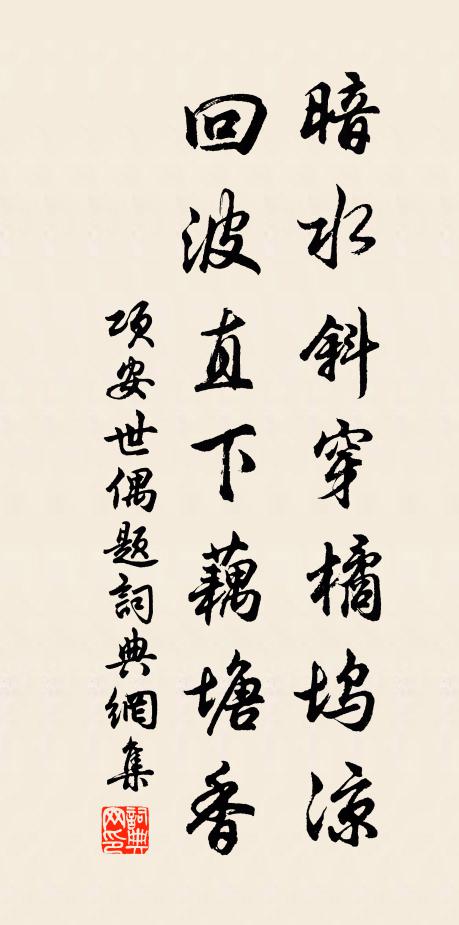 暗水斜穿橘坞涼
回波直下藕塘香
项安世偶题詞典網集
詞典
网印